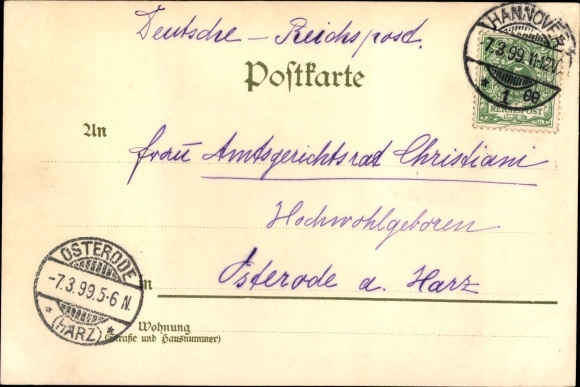 Deutsche - Reichspost.
Postkarte
HANNOVER
7.3.99.11-12V.
* 1 gg
REICHSPOST
An
Frau Amtsgerichtsrad Christiani
Hochwohlgeboren
in Osterode a. Harz
OSTERODE
-7.3.99.5-6 N.
* (HARZ) *
Wohnung
(Straße und Hausnummer)